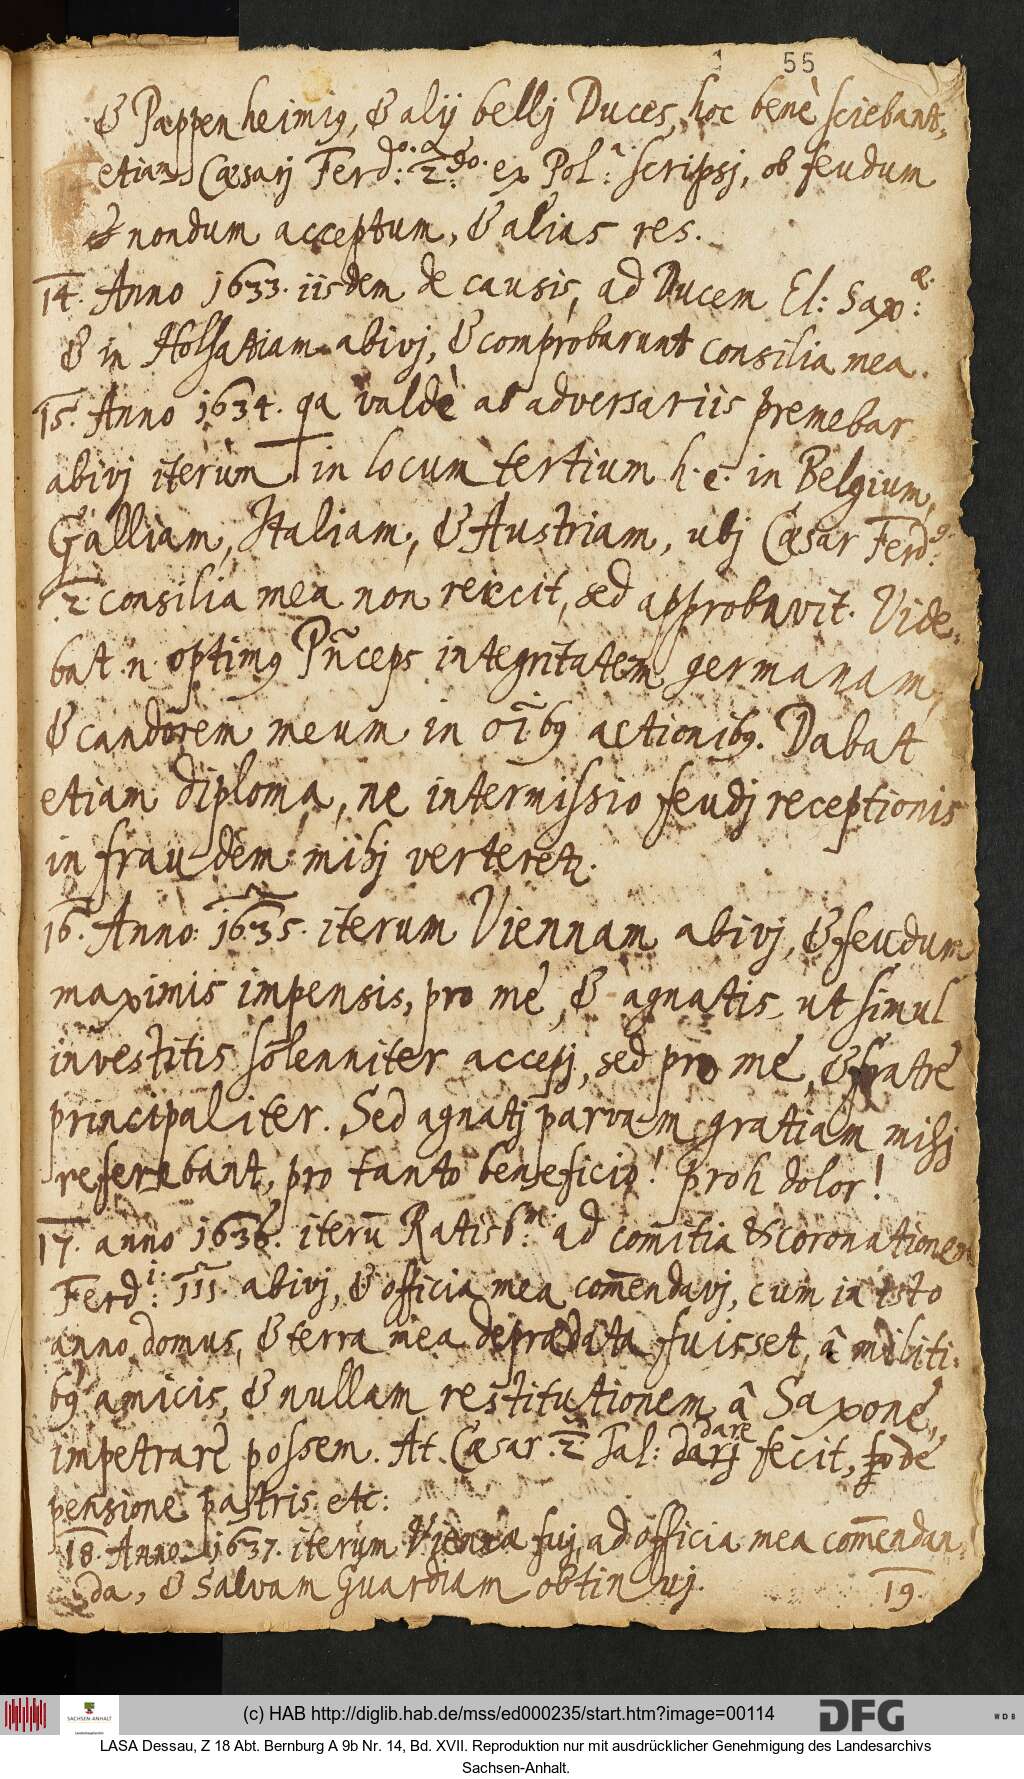 55
& Pappenheimig, & alij bellj Duces, hoc benè sciebant,
etiam Cæsarj Ferdo: 2do: ex Pola: scripsj, ob feudum
nondum acceptum, & alias res.
14. Anno 1633. iisdem de causis, ad Ducem El: Saxæ:
& in Holsatiam abivj, & comprobarunt consilia mea.
15. Anno 1634. qa valdè ab adversariis premebar
abivj iterum in locum tertium h. e. in Belgium,
Galliam, Italiam, & Austriam, ubj Cæsar Ferdg:
2. consilia mea non reiecit, sed approbavit. Vide-
bat .n. optimg Pñceps integritatem germanam,
& candorem meum in oĩbg actionibg. Dabat
etiam diploma, ne intermissio feudj receptionis
in fraudem mihj verteretz.
16. Anno: 1635. iterum Viennam abivj, & feudum
maximis impensis, pro me, & agnatis, ut simul
investitis solenniter accepj, sed pro me, & fratre
principaliter. Sed agnatj parvam gratiam mihj
referebant, pro tanto beneficio! proh dolor!
17. anno 1636. iterũ Ratisbm: ad comitia & coronationem
Ferdi: III. abivj, & officia mea com̃endavj, cum in isto
anno domus, & terra mea deprædata fuisset, â militi-
bg amicis, & nullam restitutionem â Saxone,
impetrare possem. At. Cæsar 2. Sal: darj dare fecit, pde
pensione pattris etc:
18. Anno 1637. iterum Viennæ fuj, ad officia mea com̃endan-
da, & Salvam Guardiam obtinuj.
19.
(c) HAB http://diglib.hab.de/mss/ed000235/start.htm?image=00114
SACHSEN-ANHALT
DFG
WDB
LASA Dessau, Z 18 Abt. Bernburg A 9b Nr. 14, Bd. XVII. Reproduktion nur mit ausdrücklicher Genehmigung des Landesarchivs
Sachsen-Anhalt.